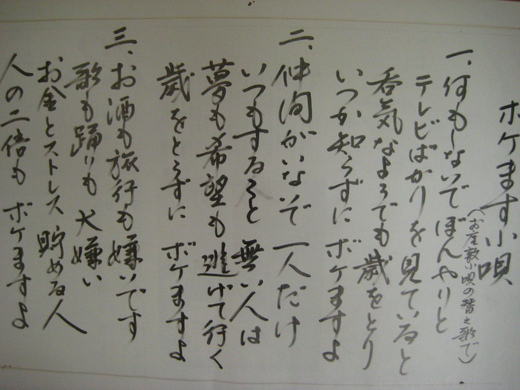 ボケます小唄
(お座敷小唄の替え歌で)
一、何もしないで ぼんやりと
テレビばかりを 見ていると
呑気なようでも 歳をとり
いつか知らずに ボケますよ
二、仲間がいないで 一人だけ
いつもすること 無い人は
夢も希望も 逃げて行く
歳をとらずに ボケますよ
三、お酒も旅行も 嫌いです
歌も踊りも 大嫌い
お金とストレス 貯める人
人の二倍も ボケますよ